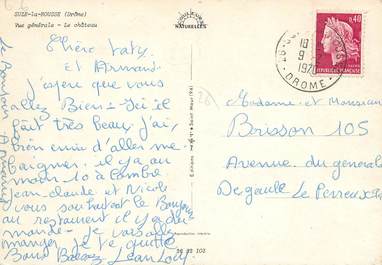 SUZE-la-ROUSSE (Drôme)
Vue générale - Le château
COULEURS
NATURELLES
Chère Taty
et Armand
j'espère que vous
allez Bien - Ici il
fait très beau, j'ai
bien envie d'aller me
baigner il y a au
moins 10 à l'ombre
jean-claude et Nicole
vous souhaitent le Bonjour
au restaurant il y a du
monde - je vais aller
manger je te quitte
Bons Baisers
le Bonjour à Armand
Editions
26 92 102
18 H
9
1970
DROME
0,40
REPUBLIQUE FRANCAISE
Madame et Monsieur
Brisson 105
Avenue du general
De gaulle Le Perreux